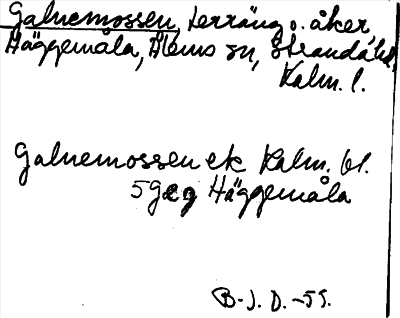 Galnemossen, terräng o. åker,
Häggemåla, Ålems sn, Stranda hd,
Kalm. l.
Galnemossen ek Kalm. bl.
5G Häggemåla
B-J. D. -55.